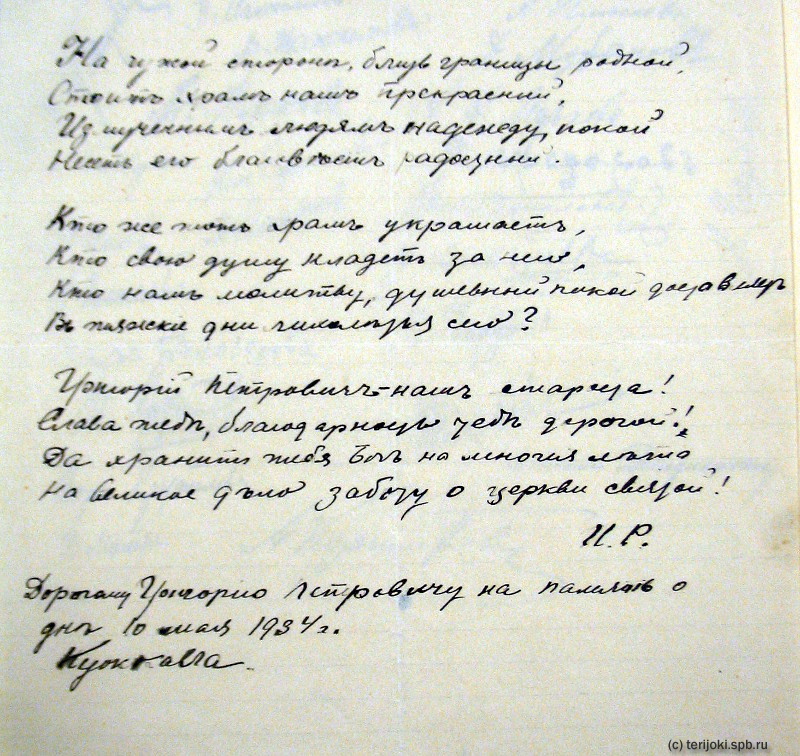 На чужой сторонѣ, близъ границы родной,
Стоитъ храмъ нашъ прекрасный,
Измученнымъ людямъ надежду, покой
Несетъ его благовѣстъ радостный.
Кто же тотъ храмъ украшаетъ,
Кто свою душу кладетъ за него,
Кто намъ молитву, душевный покой доставляетъ
Въ тяжкіе дни лихолѣтья сего?
Григорій Петровичъ – нашъ староста!
Слава тебѣ, благодарность тебѣ дорогой!
Да хранитъ тебя Богъ на многія лѣта
На великое дѣло заботу о церкви святой!
И. Р.
Дорогому Григорію Петровичу на память о
днѣ 10 мая 1934 г.
Куоккала.
(c) terijoki.spb.ru